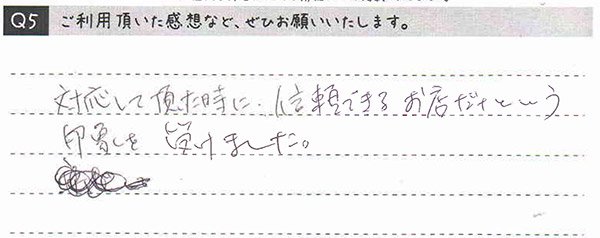 Q5 ご利用頂いた感想など、ぜひお願いいたします。
対応して頂た時に、信頼できるお店だなという
印象を受けました。